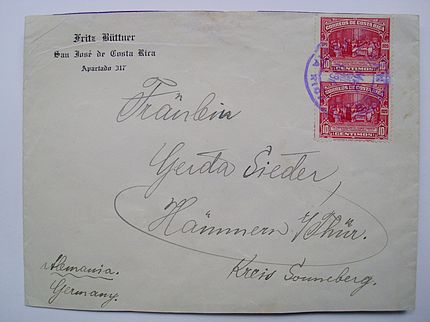 Fritz Büttner
San José de Costa Rica
Apartado 317
CORREOS DE COSTA RICA
10 10
CENTIMOS
CORREOS DE COSTA RICA
10 10
CENTIMOS
Fräulein
Gerda Sieder,
Hämmern i/Thür.
Kreis Sonneberg.
Alemania.
Germany.